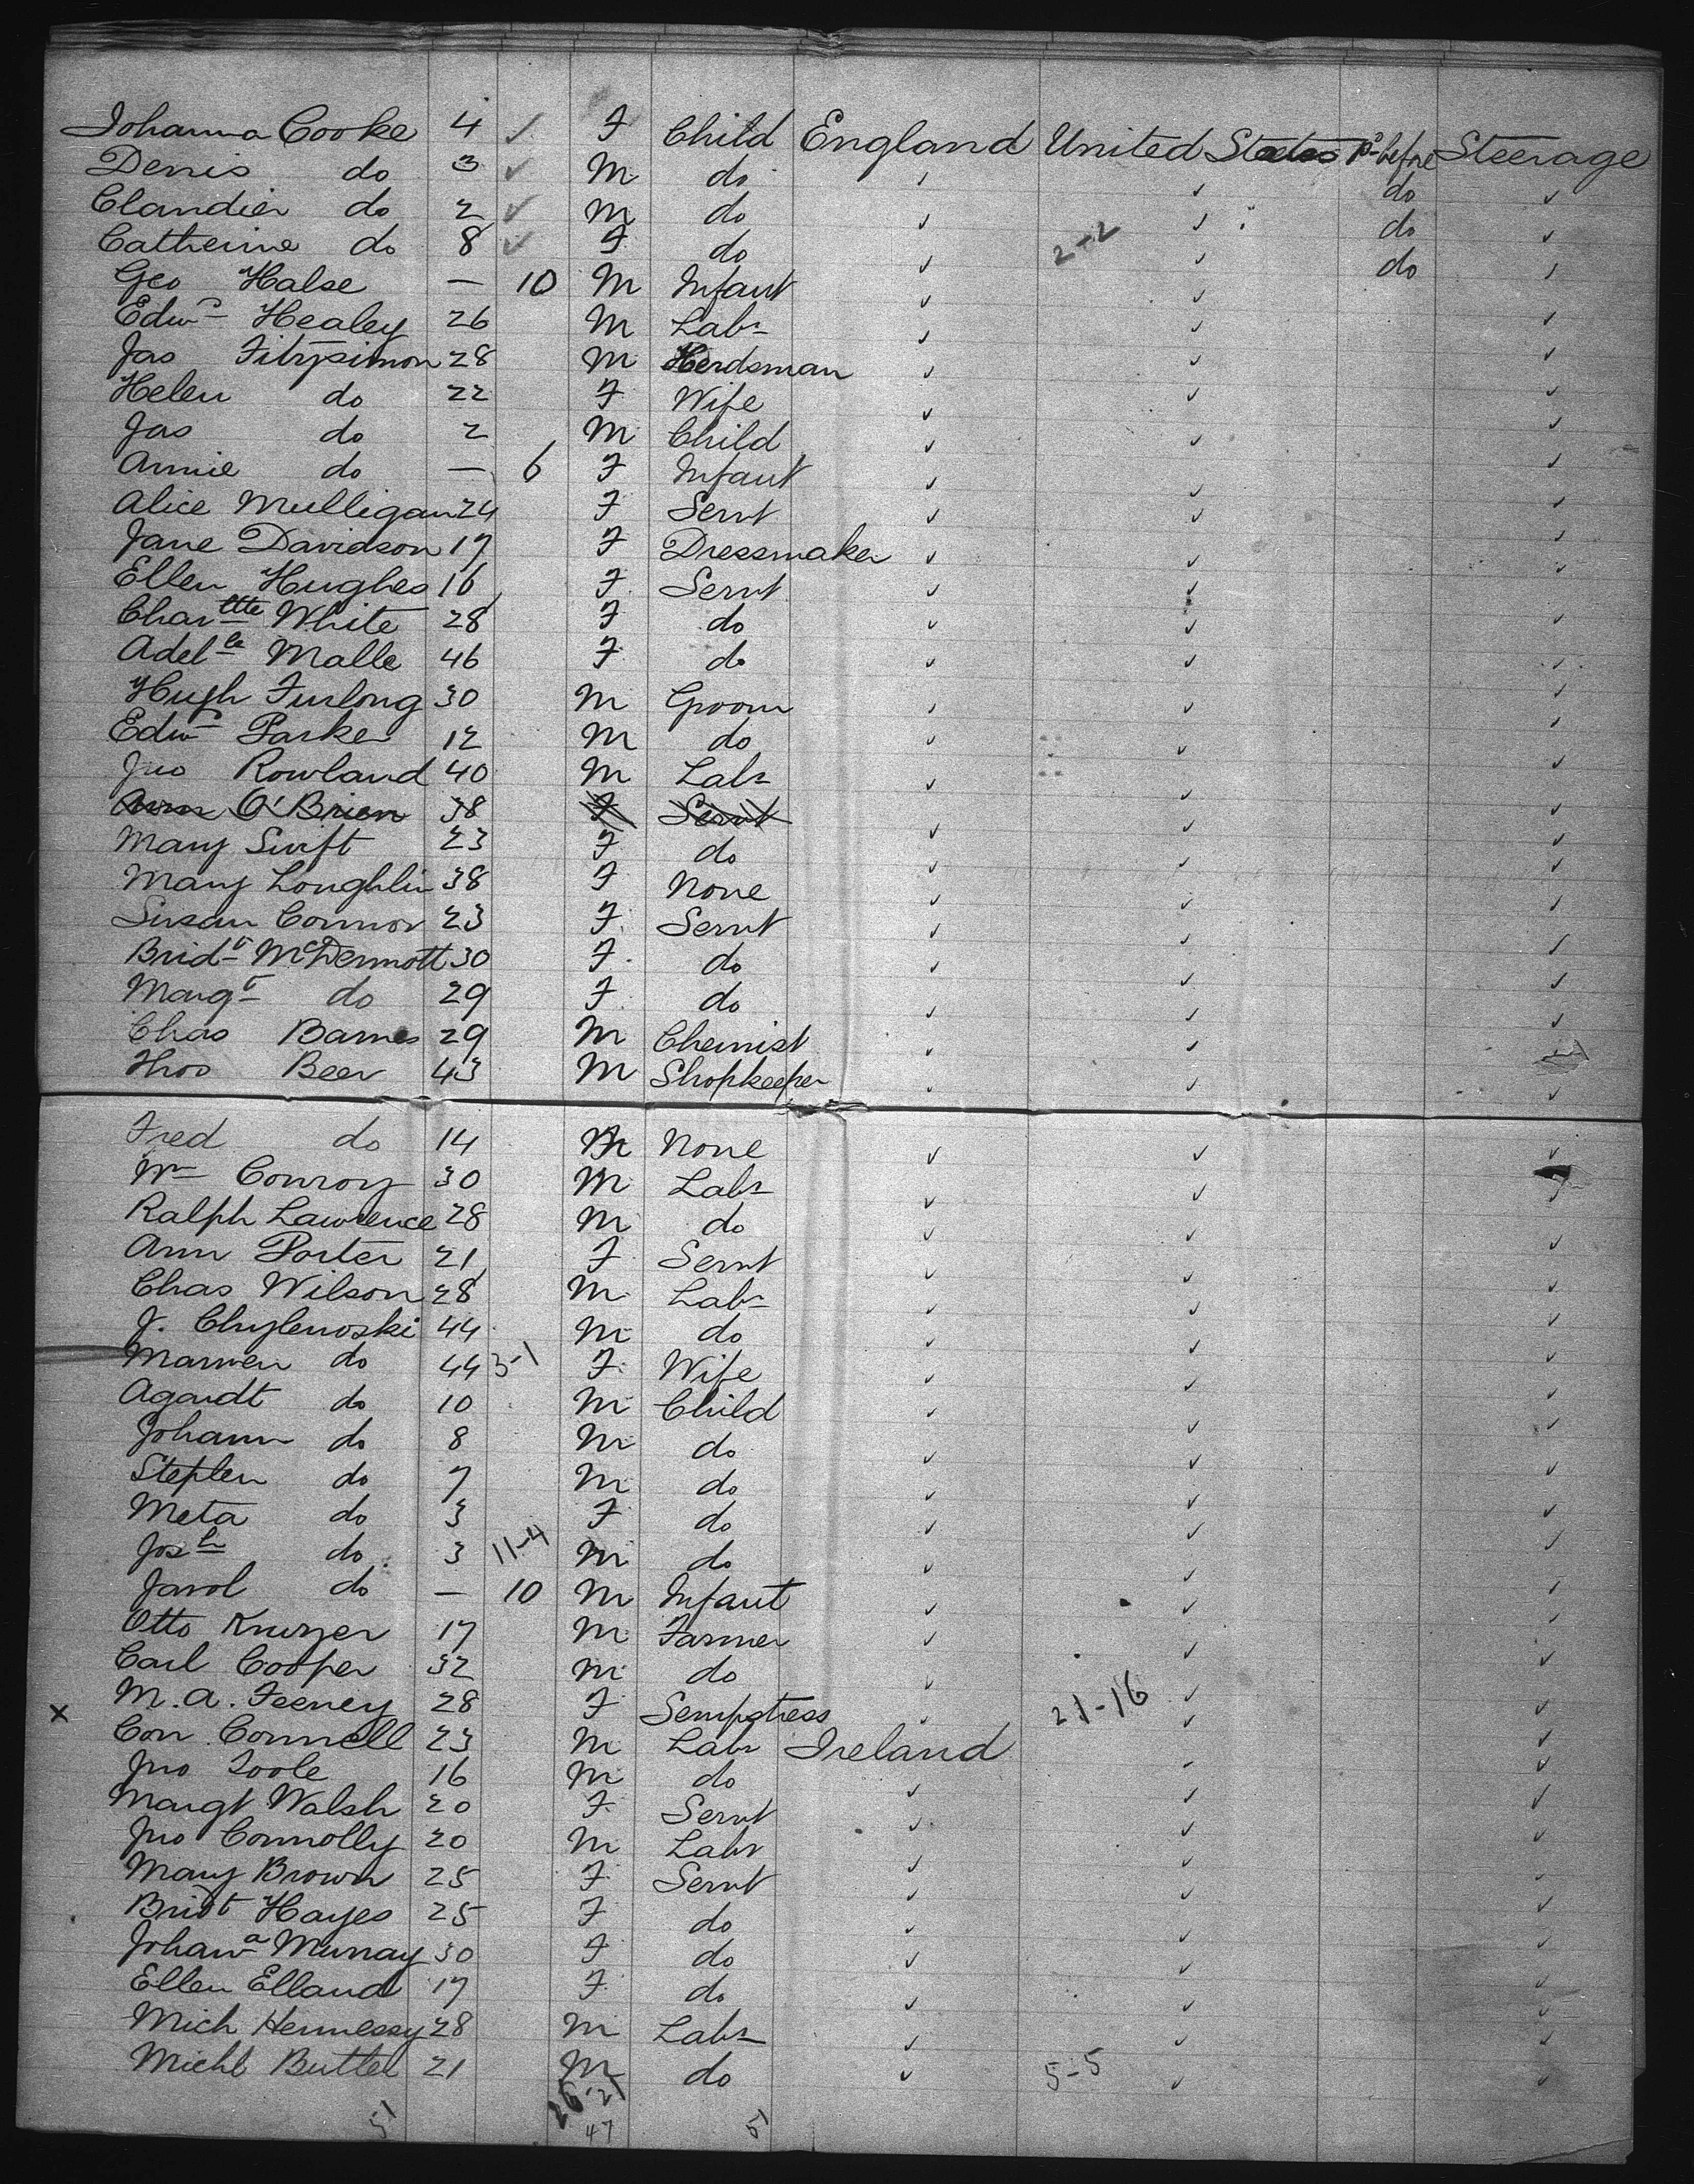 Johanna Cooke 4 ✓ F Child England United States Ps before Steerage
Denis do 3 ✓ M do ✓ ✓ do ✓
Claudier do 2 ✓ M do ✓ ✓ do ✓
Catherine do 8 ✓ F do ✓ 2-2 ✓ do ✓
Geo Halse — 10 M Infant ✓ ✓ ✓
Edwd Healey 26 M Labr ✓ ✓ ✓
Jas Fitzsimon 28 M Herdsman ✓ ✓ ✓
Helen do 22 F Wife ✓ ✓ ✓
Jas do 2 M Child ✓ ✓ ✓
Annie do — 6 F Infant ✓ ✓ ✓
Alice Mulligan 24 F Servt ✓ ✓ ✓
Jane Davidson 17 F Dressmaker ✓ ✓ ✓
Ellen Hughes 16 F Servt ✓ ✓ ✓
Charltte White 28 F do ✓ ✓ ✓
Adelle Malle 46 F do ✓ ✓ ✓
Hugh Furlong 30 M Groom ✓ ✓ ✓
Edwd Parker 12 M do ✓ ✓ ✓
Jno Rowland 40 M Labr ✓ ✓ ✓
Ann O'Brien 38 F Servt ✓ ✓ ✓
Mary Swift 23 F do ✓ ✓ ✓
Mary Loughlin 38 F None ✓ ✓ ✓
Susan Connor 23 F Servt ✓ ✓ ✓
Bridt McDermott 30 F do ✓ ✓ ✓
Margt do 29 F do ✓ ✓ ✓
Chas Barnes 29 M Chemist ✓ ✓
Thos Beer 43 M Shopkeeper ✓ ✓ ✓
Fred do 14 M None ✓ ✓ ✓
Wm Conroy 30 M Labr ✓ ✓ ✓
Ralph Lawrence 28 M do ✓ ✓ ✓
Ann Porter 21 F Servt ✓ ✓ ✓
Chas Wilson 28 M Labr ✓ ✓ ✓
J. Chylenoski 44 M do ✓ ✓ ✓
do 44 3-1 F Wife ✓ ✓ ✓
Agardt do 10 M Child ✓ ✓ ✓
Johann do 8 M do ✓ ✓ ✓
Stephen do 7 M do ✓ ✓ ✓
Meta do 3 F do ✓ ✓ ✓
Josh do 3 11-4 M do ✓ ✓ ✓
Jarol do — 10 M Infant ✓ ✓ ✓
Otto 17 M Farmer ✓ ✓ ✓
Carl Cooper 32 M do ✓ ✓ ✓
x M. A. Feeney 28 F Sempstress ✓ 21-16 ✓ ✓
Con Connell 23 M Labr Ireland ✓ ✓
Jno Toole 16 M do ✓ ✓ ✓
Margt Walsh 20 F Servt ✓ ✓ ✓
Jno Connolly 20 M Labr ✓ ✓ ✓
Mary Brown 25 F Servt ✓ ✓ ✓
Bridt Hayes 25 F do ✓ ✓ ✓
Johana Murray 30 F do ✓ ✓ ✓
Ellen Elland 17 F do ✓ ✓ ✓
Mich Hennessy 28 M Labr ✓ ✓ ✓
Michl Butler 21 M do ✓ 5-5 ✓ ✓
51 26-21 51
47